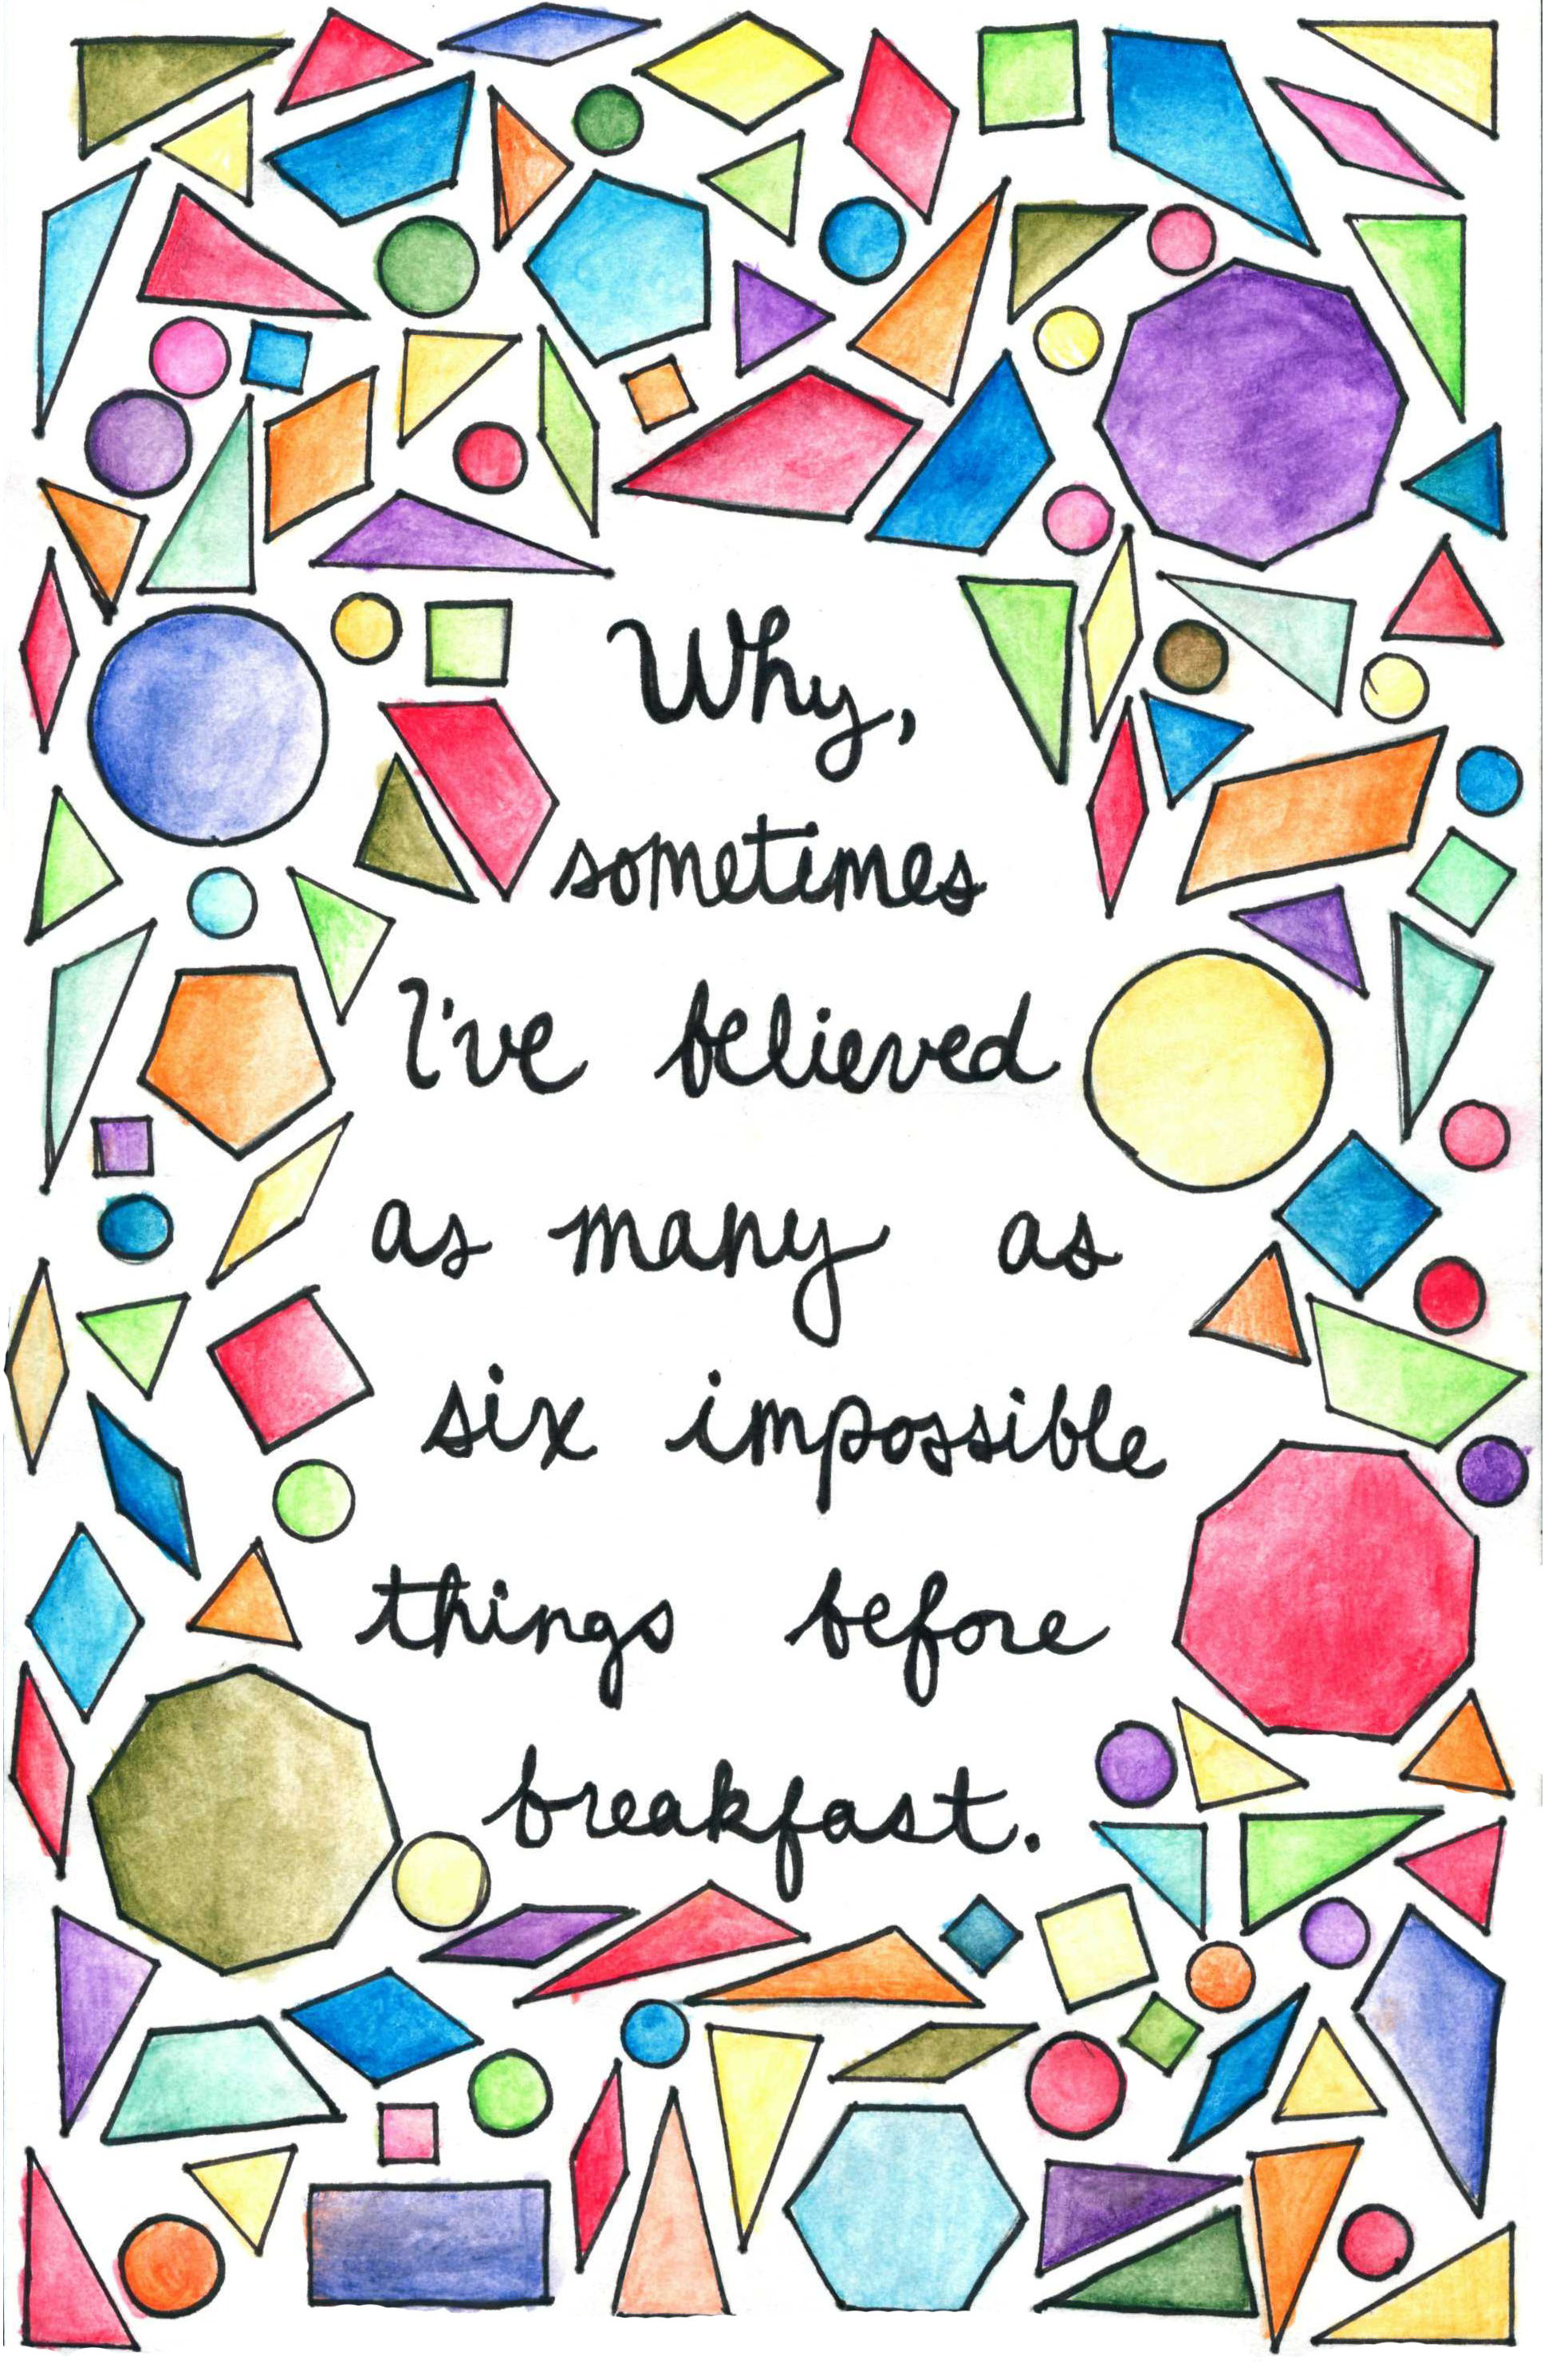 Why,
sometimes
I've believed
as many as
six impossible
things before
breakfast.